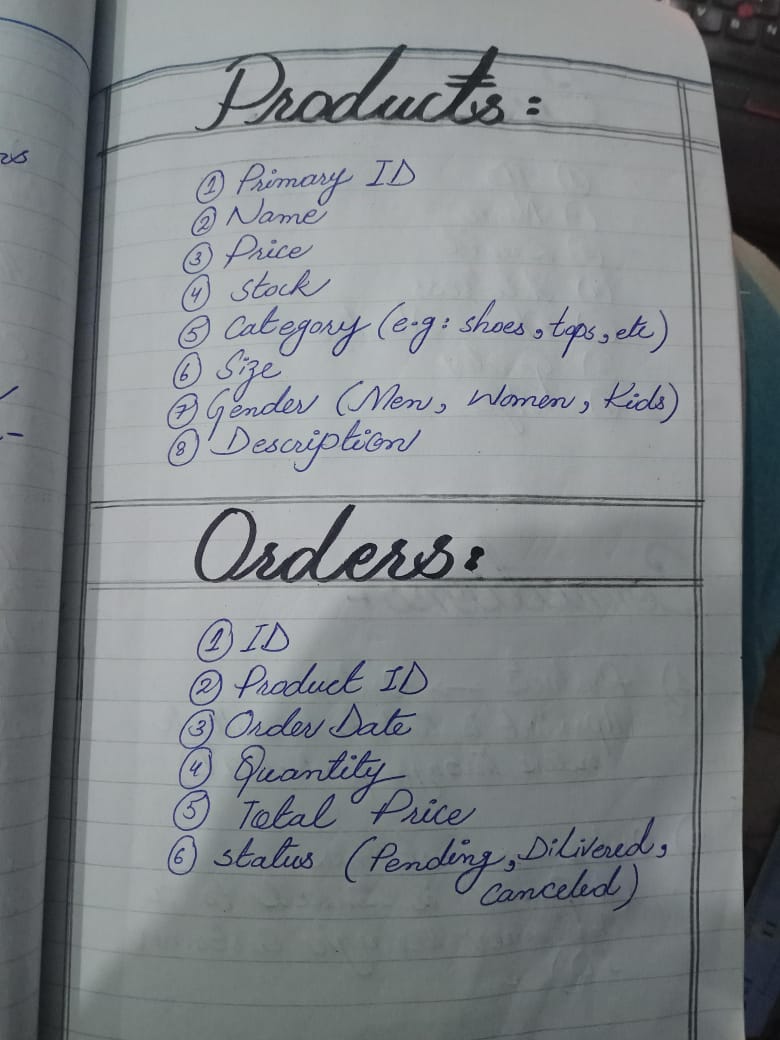 Products:
① Primary ID
② Name
③ Price
④ Stock
⑤ Category (e.g: shoes, tops, etc)
⑥ Size
⑦ Gender (Men, Women, Kids)
⑧ Description
Orders:
① ID
② Product ID
③ Order Date
④ Quantity
⑤ Total Price
⑥ Status (Pending, Dilivered,
Canceled)